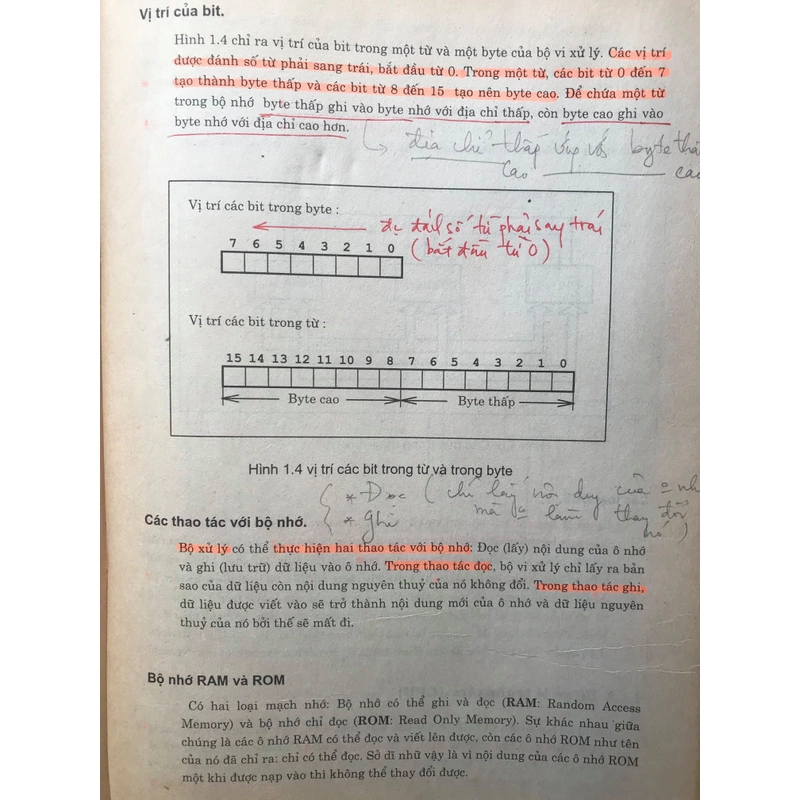 Vị trí của bit.
Hình 1.4 chỉ ra vị trí của bit trong một từ và một byte của bộ vi xử lý. Các vị trí
được đánh số từ phải sang trái, bắt đầu từ 0. Trong một từ, các bit từ 0 đến 7
tạo thành byte thấp và các bit từ 8 đến 15 tạo nên byte cao. Để chứa một từ
trong bộ nhớ byte thấp ghi vào byte nhớ với địa chỉ thấp, còn byte cao ghi vào
byte nhớ với địa chỉ cao hơn.
địa chỉ thấp ứng với byte thấ
cao cao
Vị trí các bit trong byte :
đánh số từ phải sang trái
(bắt đầu từ 0)
7 6 5 4 3 2 1 0
Vị trí các bit trong từ :
15 14 13 12 11 10 9 8 7 6 5 4 3 2 1 0
Byte cao Byte thấp
Hình 1.4 vị trí các bit trong từ và trong byte
* Đọc (chỉ lấy nội dung của nh
* ghi mà làm thay đổi
nó)
Các thao tác với bộ nhớ.
Bộ xử lý có thể thực hiện hai thao tác với bộ nhớ: Đọc (lấy) nội dung của ô nhớ
và ghi (lưu trữ) dữ liệu vào ô nhớ. Trong thao tác đọc, bộ vi xử lý chỉ lấy ra bản
sao của dữ liệu còn nội dung nguyên thuỷ của nó không đổi. Trong thao tác ghi,
dữ liệu được viết vào sẽ trở thành nội dung mới của ô nhớ và dữ liệu nguyên
thuỷ của nó bởi thế sẽ mất đi.
Bộ nhớ RAM và ROM
Có hai loại mạch nhớ: Bộ nhớ có thể ghi và đọc (RAM: Random Access
Memory) và bộ nhớ chỉ đọc (ROM: Read Only Memory). Sự khác nhau giữa
chúng là các ô nhớ RAM có thể đọc và viết lên được, còn các ô nhớ ROM như tên
của nó đã chỉ ra: chỉ có thể đọc. Sở dĩ như vậy là vì nội dung của các ô nhớ ROM
một khi được nạp vào thì không thể thay đổi được.